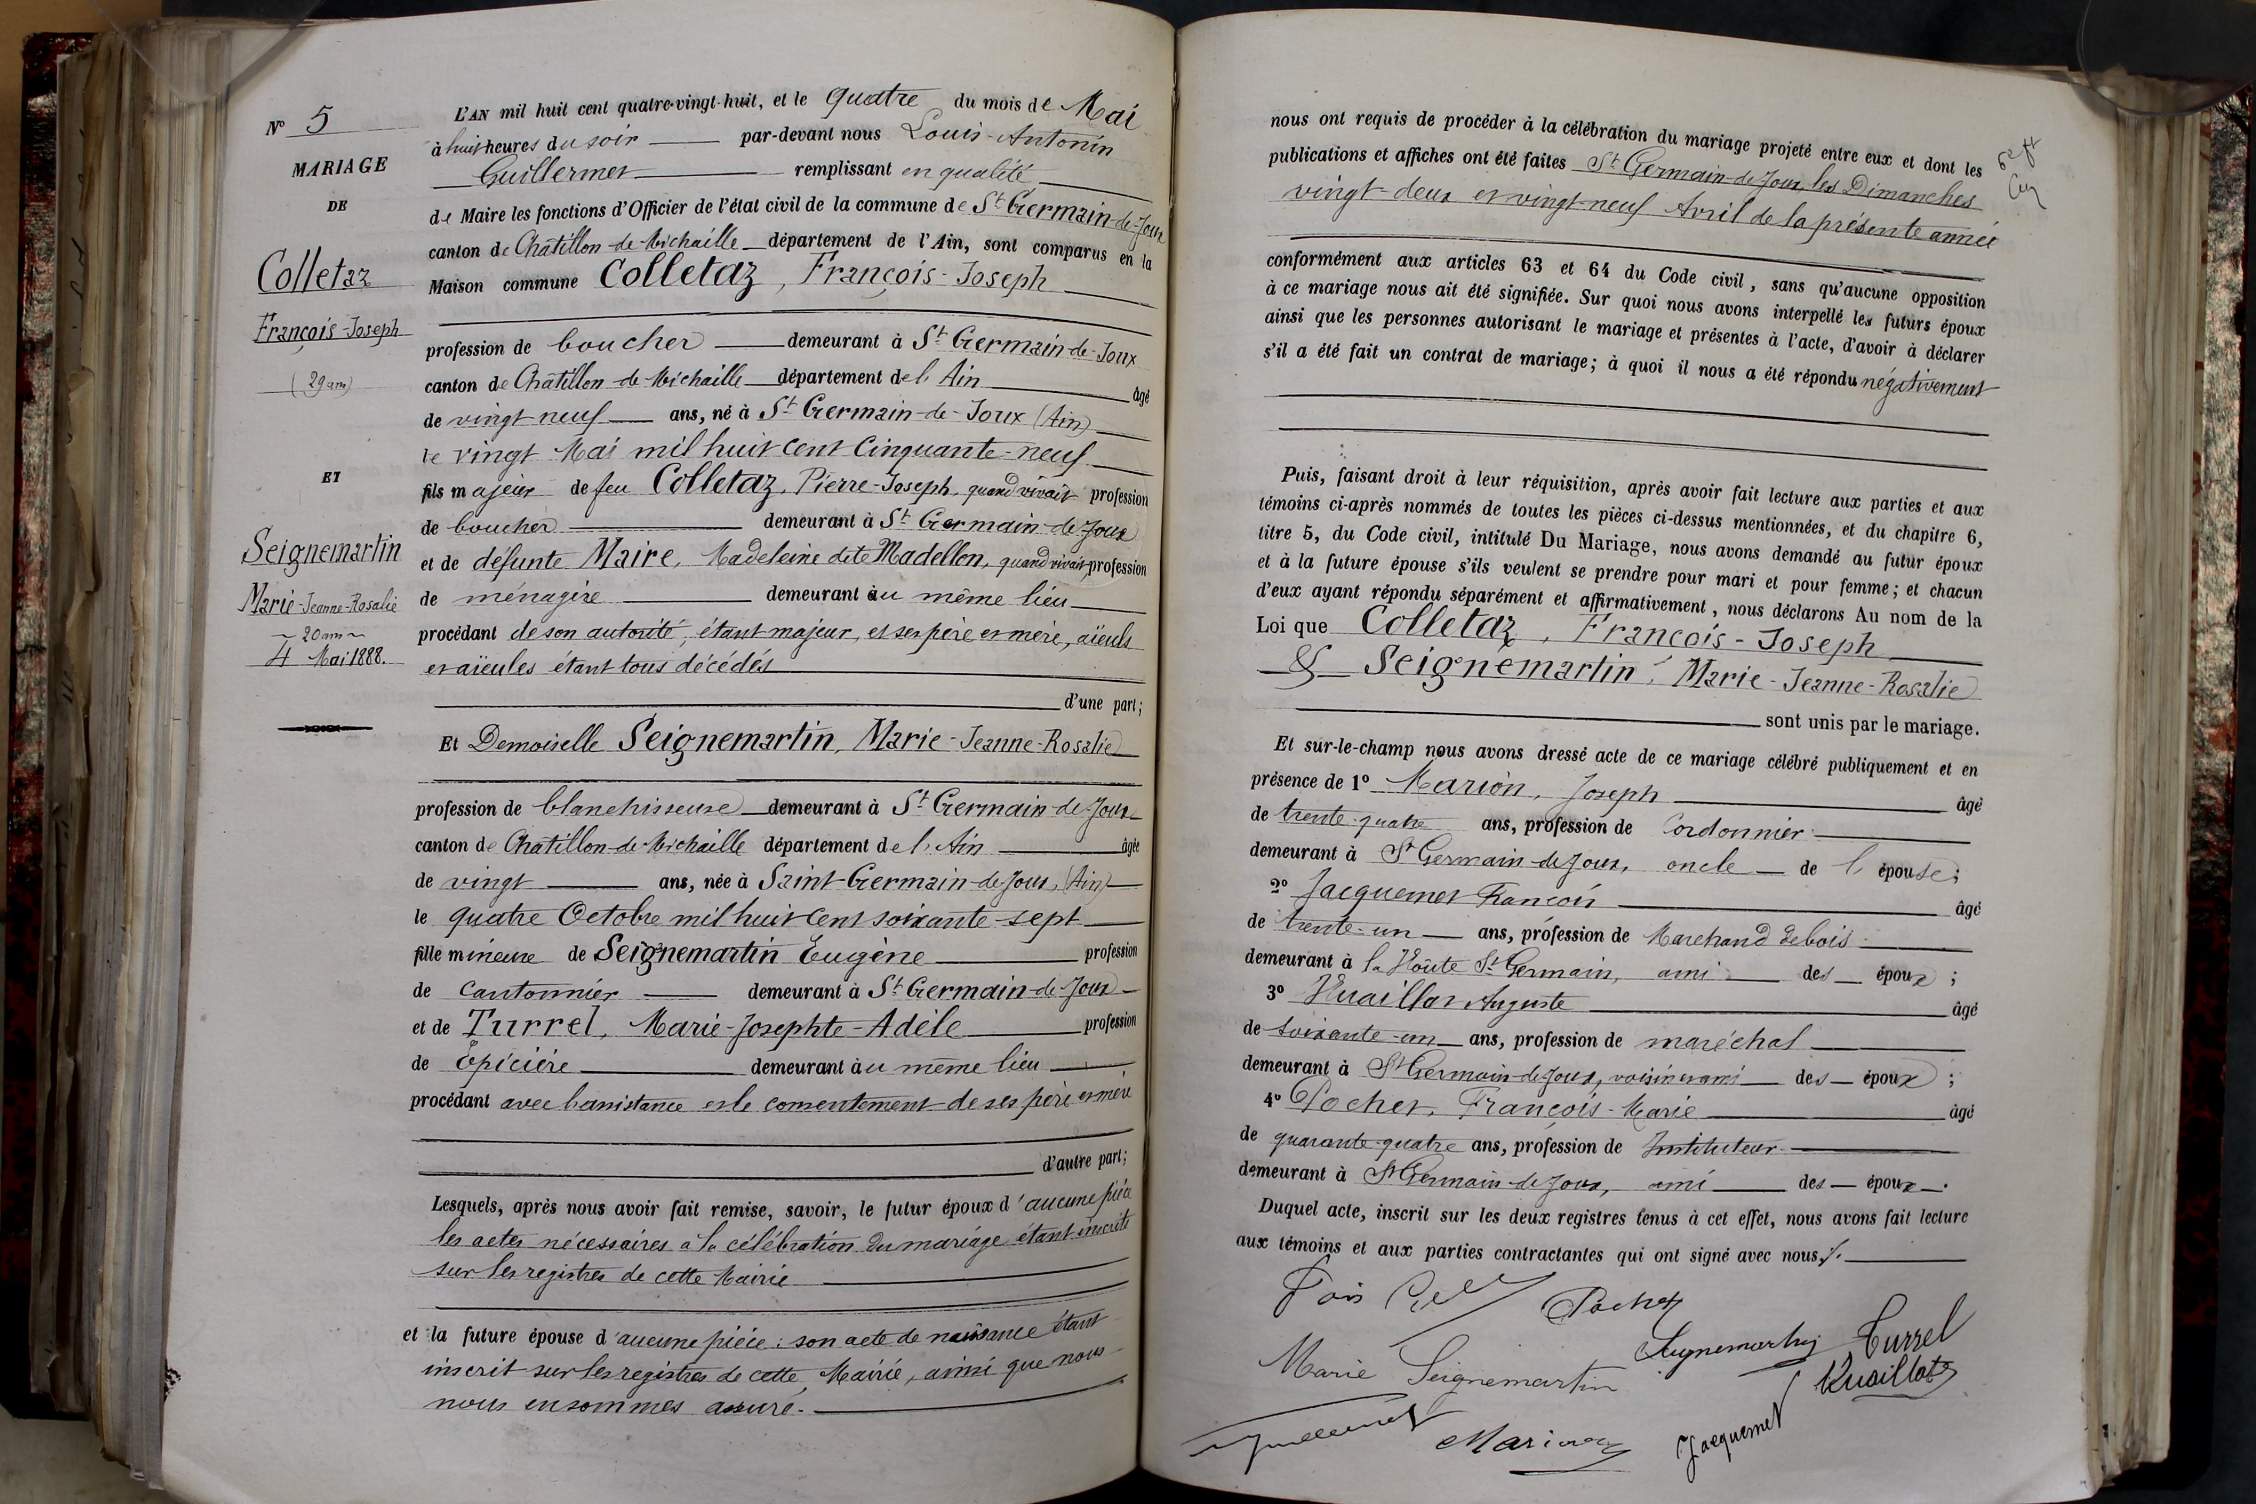 N° 5
MARIAGE
DE
Colletaz
François-Joseph
(29 ans)
ET
Seignemartin
Marie-Jeanne-Rosalie
20 ans
4 Mai 1888.
L'AN mil huit cent quatre-vingt-huit, et le quatre du mois de Mai
à huit heures du soir par-devant nous Louis-Antonin
Guillermet remplissant en qualité
de Maire les fonctions d'Officier de l'état civil de la commune de St Germain-de-Joux
canton de Châtillon-de-Michaille département de l'Ain, sont comparus en la
Maison commune Colletaz, François-Joseph
profession de boucher demeurant à St Germain-de-Joux
canton de Châtillon-de-Michaille département de l'Ain âgé
de vingt neuf ans, né à St Germain-de-Joux (Ain)
le vingt Mai mil huit cent cinquante-neuf
fils majeur de feu Colletaz, Pierre-Joseph, quand vivait profession
de boucher demeurant à St Germain-de-Joux
et de défunte Maire, Madeleine dite Madellon, quand vivait profession
de ménagère demeurant au même lieu
procédant de son autorité, étant majeur, et ses père et mère, aïeuls
et aïeules étant tous décédés
d'une part;
Et Demoiselle Seignemartin, Marie-Jeanne-Rosalie
profession de blanchisseuse demeurant à St Germain-de-Joux
canton de Châtillon-de-Michaille département de l'Ain âgée
de vingt ans, née à Saint-Germain-de-Joux, (Ain)
le quatre Octobre mil huit cent soixante-sept
fille mineure de Seignemartin Eugène profession
de cantonnier demeurant à St Germain-de-Joux
et de Turrel, Marie-Josephte-Adèle profession
de Epicière demeurant au même lieu
procédant avec l'assistance et le consentement de ses père et mère
d'autre part;
Lesquels, après nous avoir fait remise, savoir, le futur époux d'aucune pièce
les actes nécessaires à la célébration du mariage étant inscrits
sur les registres de cette Mairie
et la future épouse d'aucune pièce : son acte de naissance étant
inscrit sur les registres de cette Mairie, ainsi que nous
nous en sommes assuré.
nous ont requis de procéder à la célébration du mariage projeté entre eux et dont les
publications et affiches ont été faites St Germain-de-Joux, les Dimanches
vingt-deux et vingt-neuf Avril de la présente année
conformément aux articles 63 et 64 du Code civil, sans qu'aucune opposition
à ce mariage nous ait été signifiée. Sur quoi nous avons interpellé les futurs époux
ainsi que les personnes autorisant le mariage et présentes à l'acte, d'avoir à déclarer
s'il a été fait un contrat de mariage; à quoi il nous a été répondu négativement
Puis, faisant droit à leur réquisition, après avoir fait lecture aux parties et aux
témoins ci-après nommés de toutes les pièces ci-dessus mentionnées, et du chapitre 6,
titre 5, du Code civil, intitulé Du Mariage, nous avons demandé au futur époux
et à la future épouse s'ils veulent se prendre pour mari et pour femme; et chacun
d'eux ayant répondu séparément et affirmativement, nous déclarons Au nom de la
Loi que Colletaz, François-Joseph
& Seignemartin, Marie-Jeanne-Rosalie
sont unis par le mariage.
Et sur-le-champ nous avons dressé acte de ce mariage célébré publiquement et en
présence de 1° Marion, Joseph âgé
de trente-quatre ans, profession de Cordonnier
demeurant à St Germain-de-Joux, oncle de l'épouse;
2° Jacquemet François âgé
de trente-un ans, profession de Marchand de bois
demeurant à la Voûte St Germain, ami des époux;
3° Vuaillat Auguste âgé
de soixante-un ans, profession de maréchal
demeurant à St Germain-de-Joux, voisin et ami des époux;
4° Pochet, François-Marie âgé
de quarante-quatre ans, profession de Instituteur
demeurant à St Germain-de-Joux, ami des époux.
Duquel acte, inscrit sur les deux registres tenus à cet effet, nous avons fait lecture
aux témoins et aux parties contractantes qui ont signé avec nous.
Pochet
Seignemartin Turrel
Marie Seignemartin Vuaillat
Guillermet Marion Jacquemet